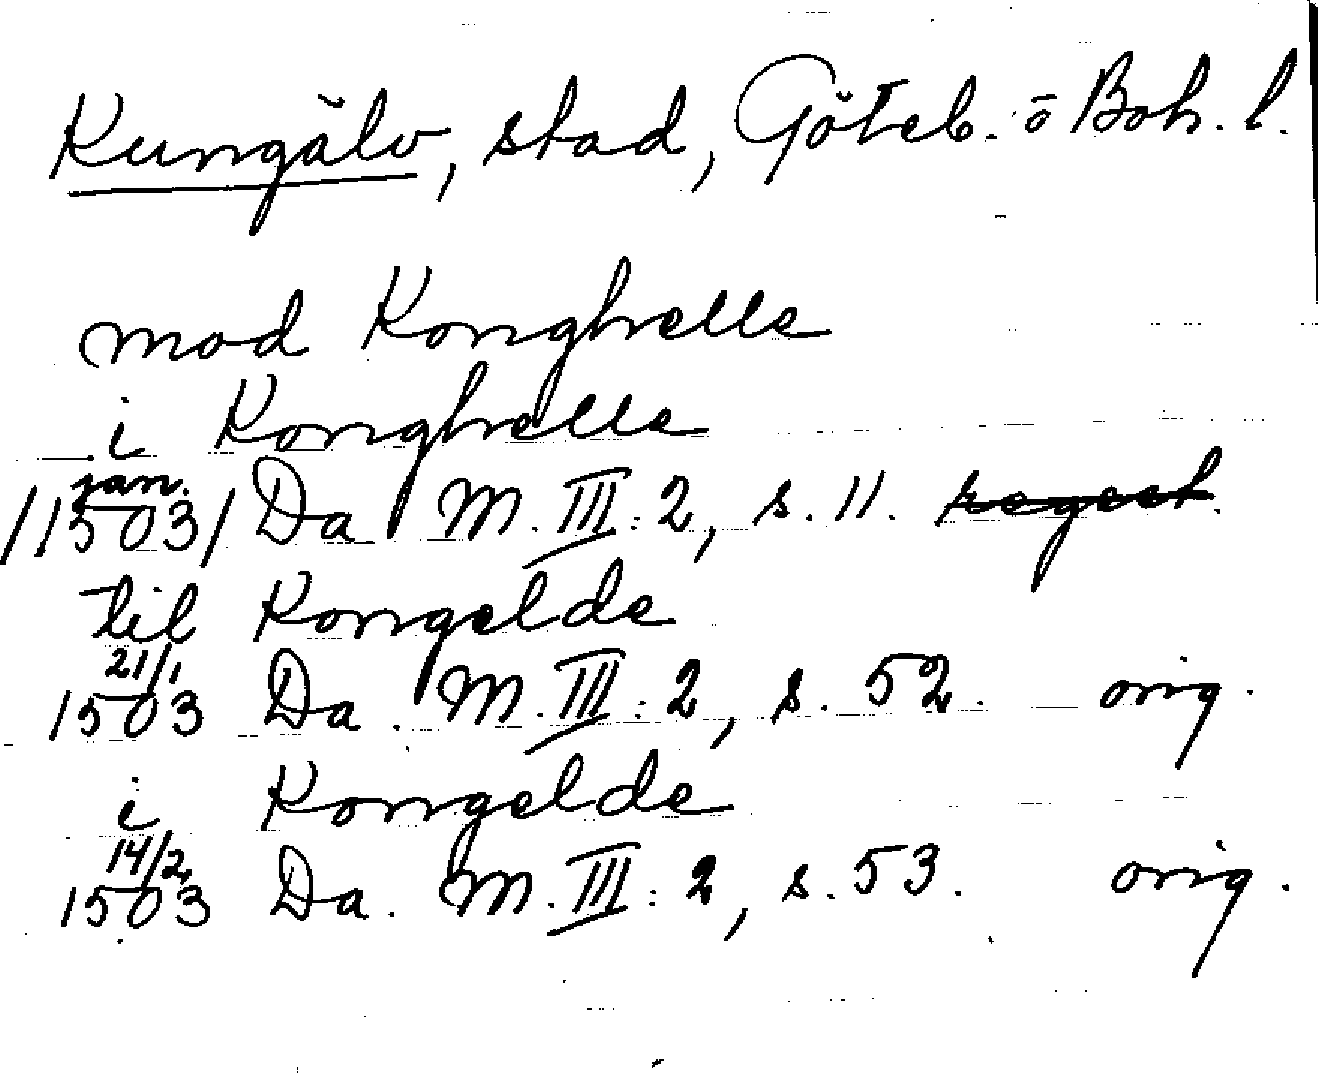 Kungälv, stad, Göteb. o Boh. l.
mod Konghelle
i Konghelle
jan.
/1503/ Da M. III: 2, s. 11. regest.
til Kongelde
21/1
1503 Da. M. III: 2, s. 52. orig.
i Kongelde
14/2
1503 Da. M. III: 2, s. 53. orig.